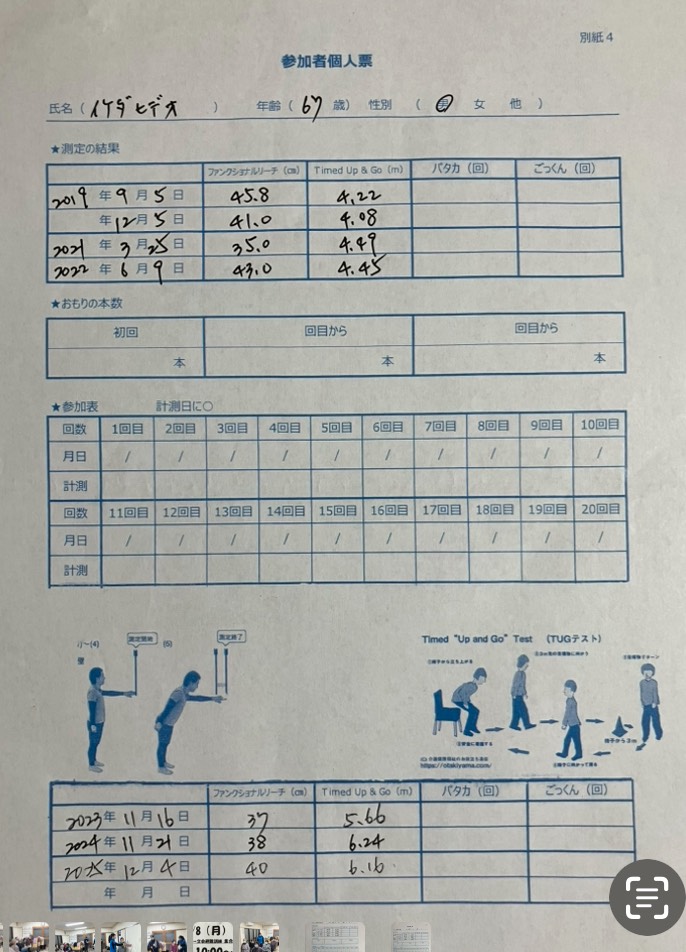 別紙4
参加者個人票
氏名 ( イケダヒデオ ) 年齢 ( 67 歳) 性別 ( 男 女 他 )
★測定の結果
ファンクショナルリーチ (㎝) Timed Up & Go (m) パタカ (回) ごっくん (回)
2019 年 9 月 5 日 45.8 4.22
年 12 月 5 日 41.0 4.08
2021 年 3 月 25 日 35.0 4.49
2022 年 6 月 9 日 43.0 4.45
★おもりの本数
初回 回目から 回目から
本 本 本
★参加表 計測日に○
回数 1回目 2回目 3回目 4回目 5回目 6回目 7回目 8回目 9回目 10回目
月日 / / / / / / / / / /
計測
回数 11回目 12回目 13回目 14回目 15回目 16回目 17回目 18回目 19回目 20回目
月日 / / / / / / / / / /
計測
(4) 測定開始 (5) 測定終了
Timed "Up and Go" Test (TUGテスト)
https://otakiyama.com/
ファンクショナルリーチ (㎝) Timed Up & Go (m) パタカ (回) ごっくん (回)
2023 年 11 月 16 日 37 5.66
2024 年 11 月 21 日 38 6.24
2025 年 12 月 4 日 40 6.16
年 月 日
8 (月)